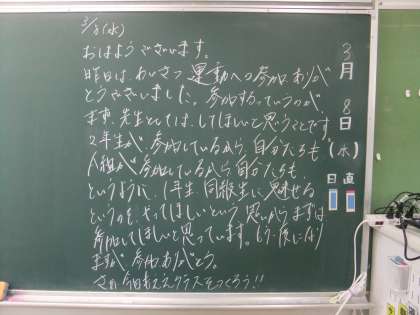 3/8(水)
おはようございます。
昨日は、あいさつ運動への参加、ありが
とうございました。参加するっていうのが
まず、先生としては、してほしいと思うことです。
2年生が参加しているから自分たちも、
人組が参加しているから自分たちも、
というように、1年生、同級生に魅せる
というのを、やってほしいという思いからまずは
参加してほしいと思っています。もう一度になり
ますが参加ありがとう。
さあ、今日も クラスをつくろう!!
3月8日(水)
日直